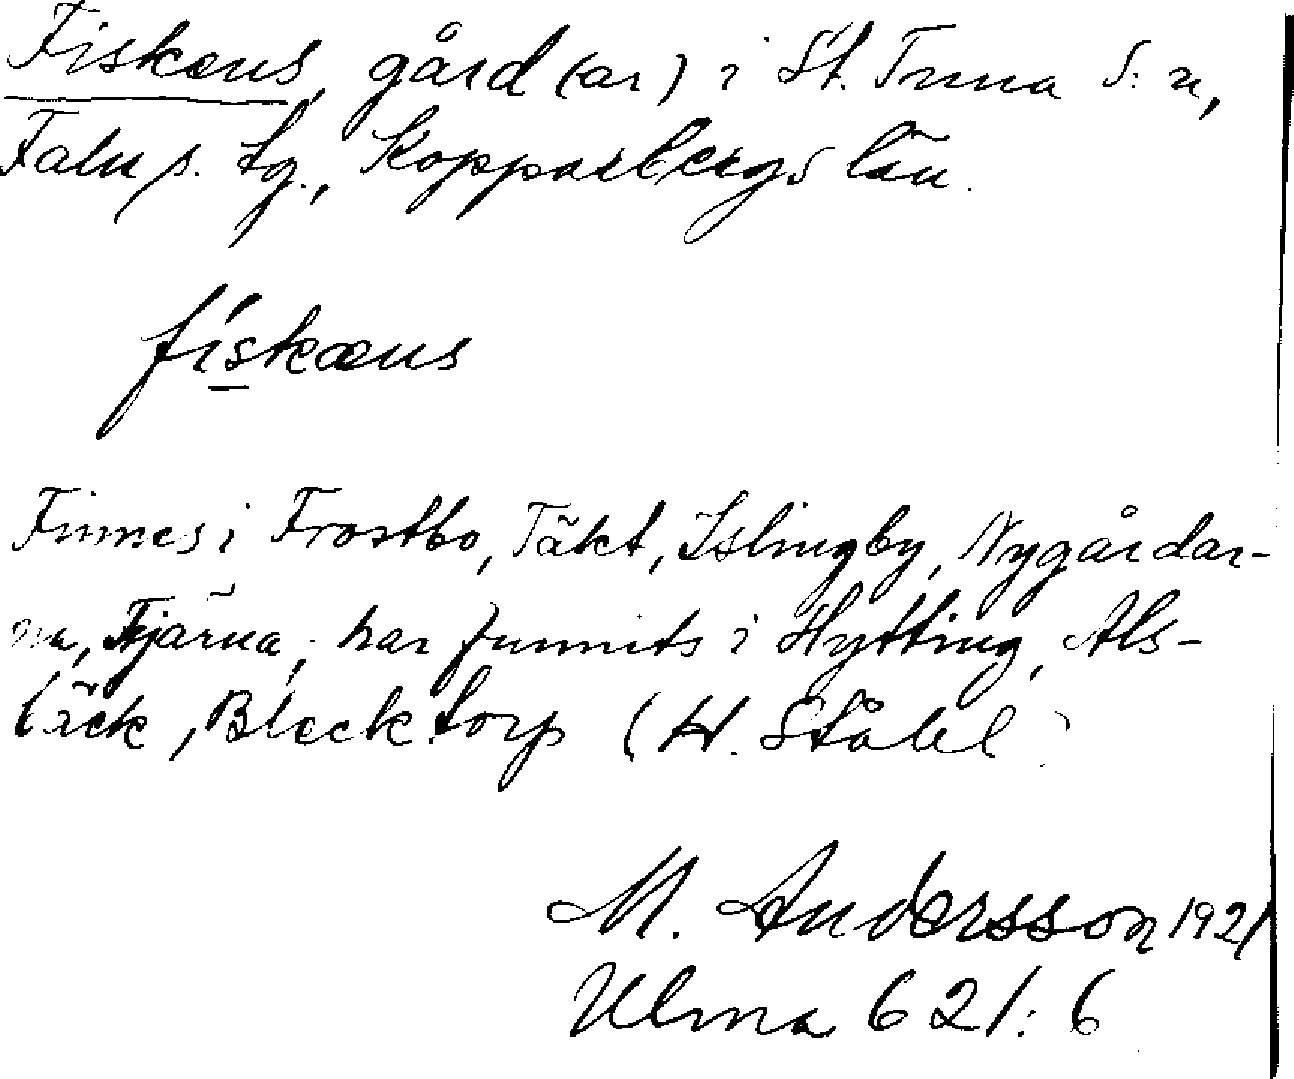 Fiskens, gård (ar) i St. Tuna s:n,
Falu s. tg., Kopparbergs län.
fiskæns
Finnes i Frostbo, Täkt, Islingby, Nygårdar-
na, Tjärna, har funnits i Hytting, Als-
bäck, Blecktorp (H. Ståhl)
M. Andersson 1921
Ulma 621:6